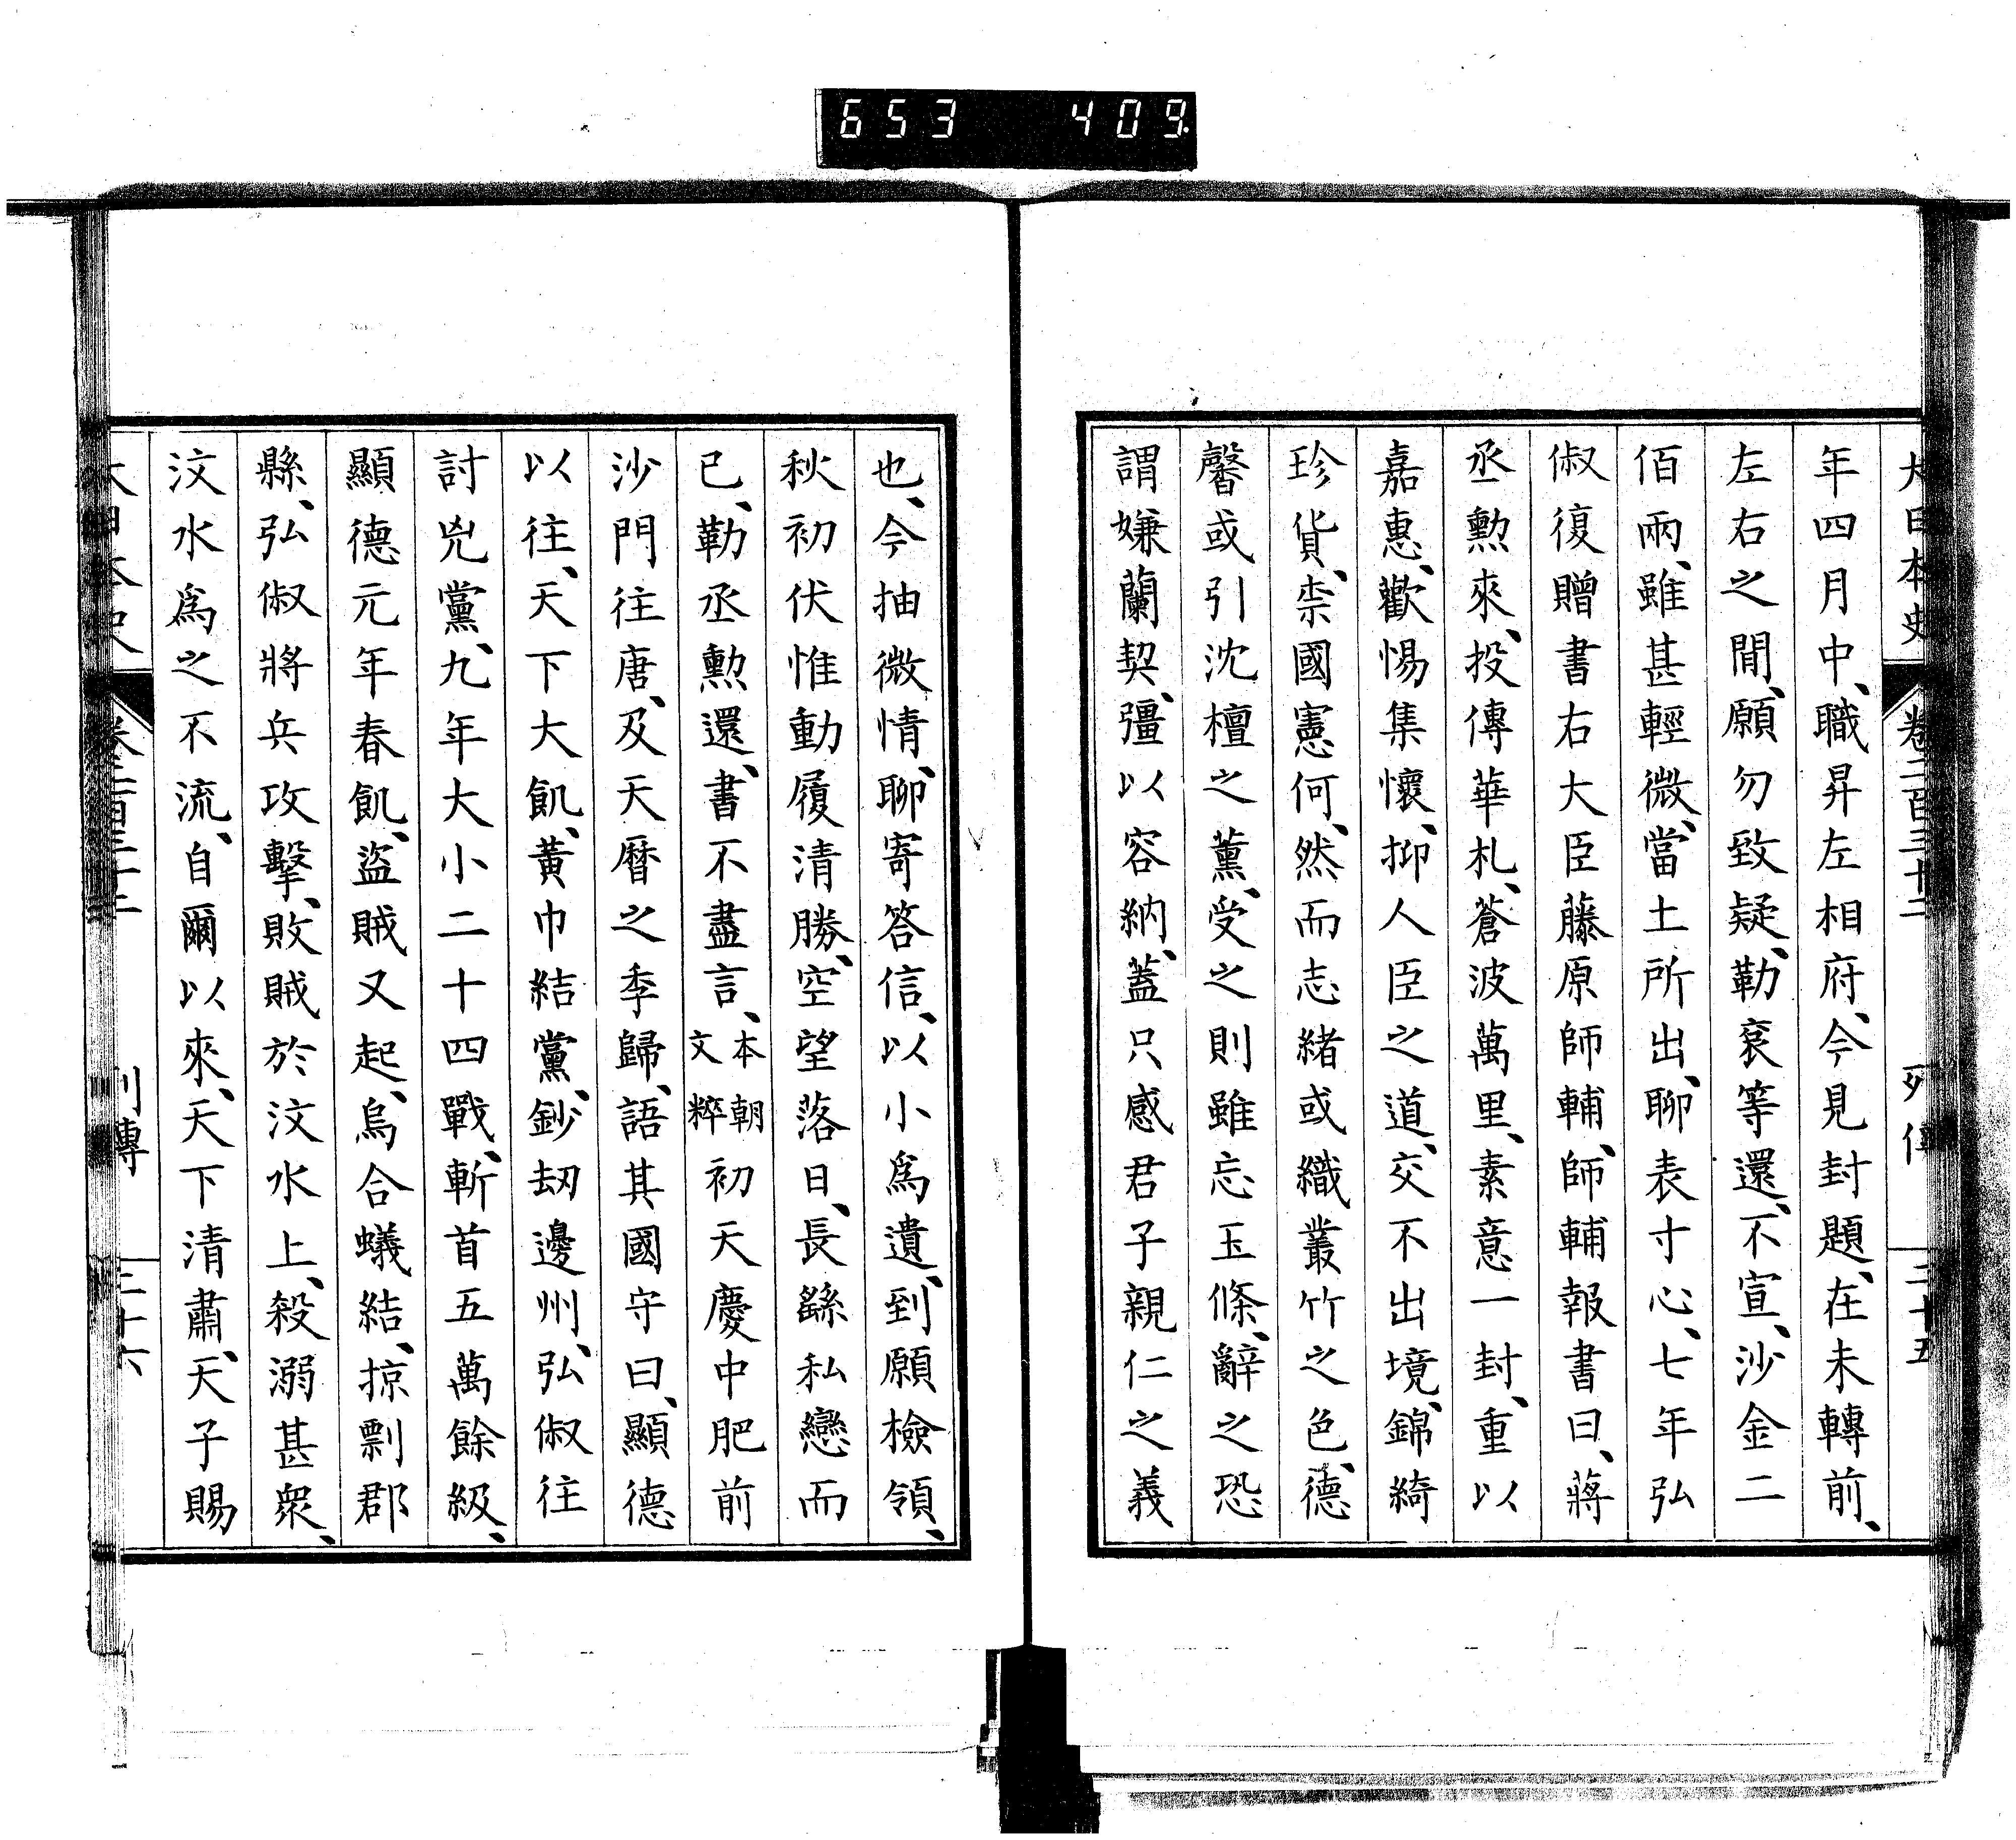 653 409
大日本史 卷二百三十二 列傳 二十五
年四月中、職昇左相府、今見封題、在未轉前、
左右之閒、願勿致疑、勒袞等還、不宣、沙金二
佰兩、雖甚輕微、當土所出、聊表寸心、七年弘
俶復贈書右大臣藤原師輔、師輔報書曰、蔣
丞勲來、投傳華札、蒼波萬里、素意一封、重以
嘉惠、歡惕集懷、抑人臣之道、交不出境、錦綺
珍貨、柰國憲何、然而志緒或織叢竹之色、德
馨或引沈檀之薰、受之則雖忘玉條、辭之恐
謂嫌蘭契、彊以容納、蓋只感君子親仁之義
也、今抽微情、聊寄答信、以小爲遺、到願檢領、
秋初伏惟動履清勝、空望落日、長繇私戀而
已、勒丞勲還、書不盡言、本朝文粹初天慶中肥前
沙門往唐、及天曆之季歸、語其國守曰、顯德
以往、天下大飢、黃巾結黨、鈔刼邊州、弘俶往
討兇黨、九年大小二十四戰、斬首五萬餘級、
顯德元年春飢、盜賊又起、烏合蟻結、掠剽郡
縣、弘俶將兵攻擊、敗賊於汶水上、殺溺甚衆、
汶水爲之不流、自爾以來、天下清肅、天子賜
列傳